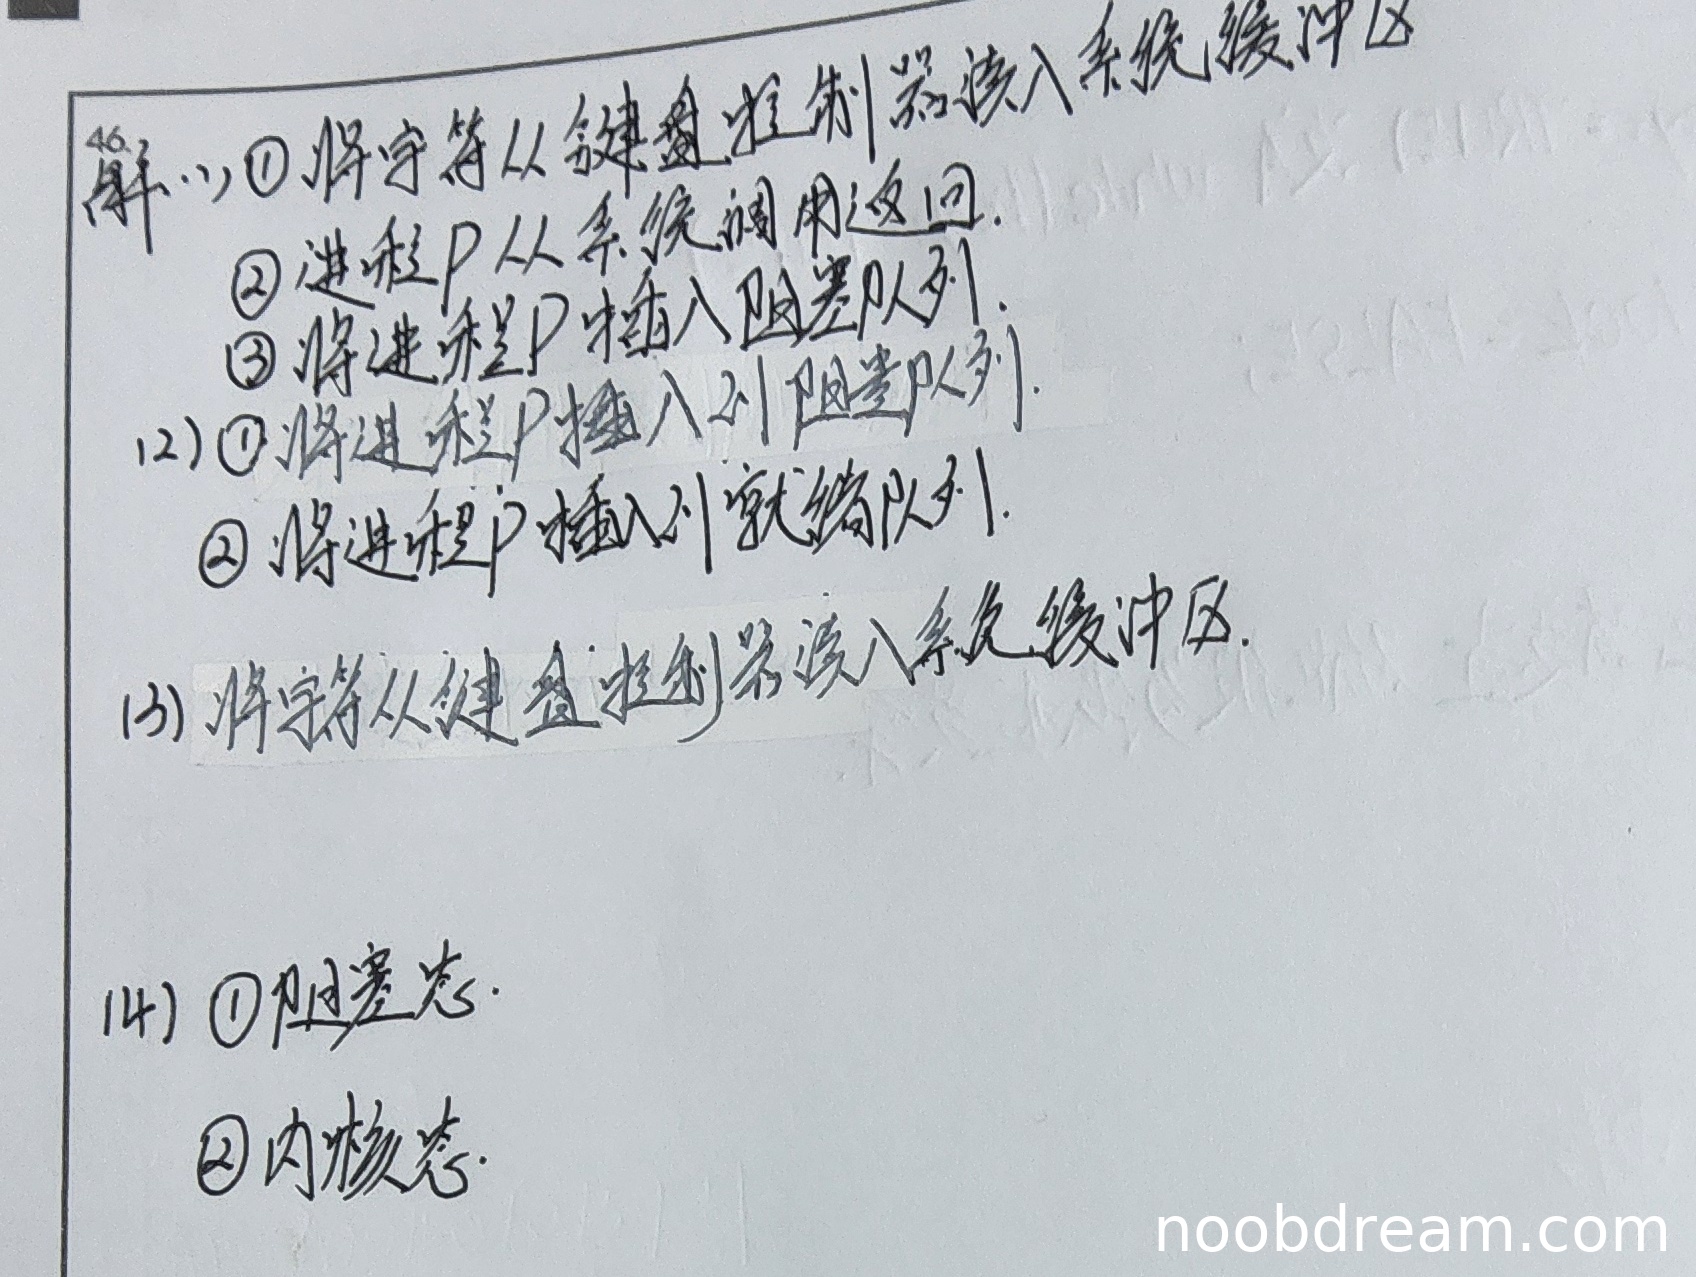 46.
解:(1)①将字符从键盘控制器读入系统缓冲区
②进程P从系统调用返回.
③将进程P插入阻塞队列.
(2)①将进程P插入到阻塞队列.
②将进程P插入到就绪队列.
(3)将字符从键盘控制器读入系统缓冲区.
(4)①阻塞态.
②内核态.
noobdream.com